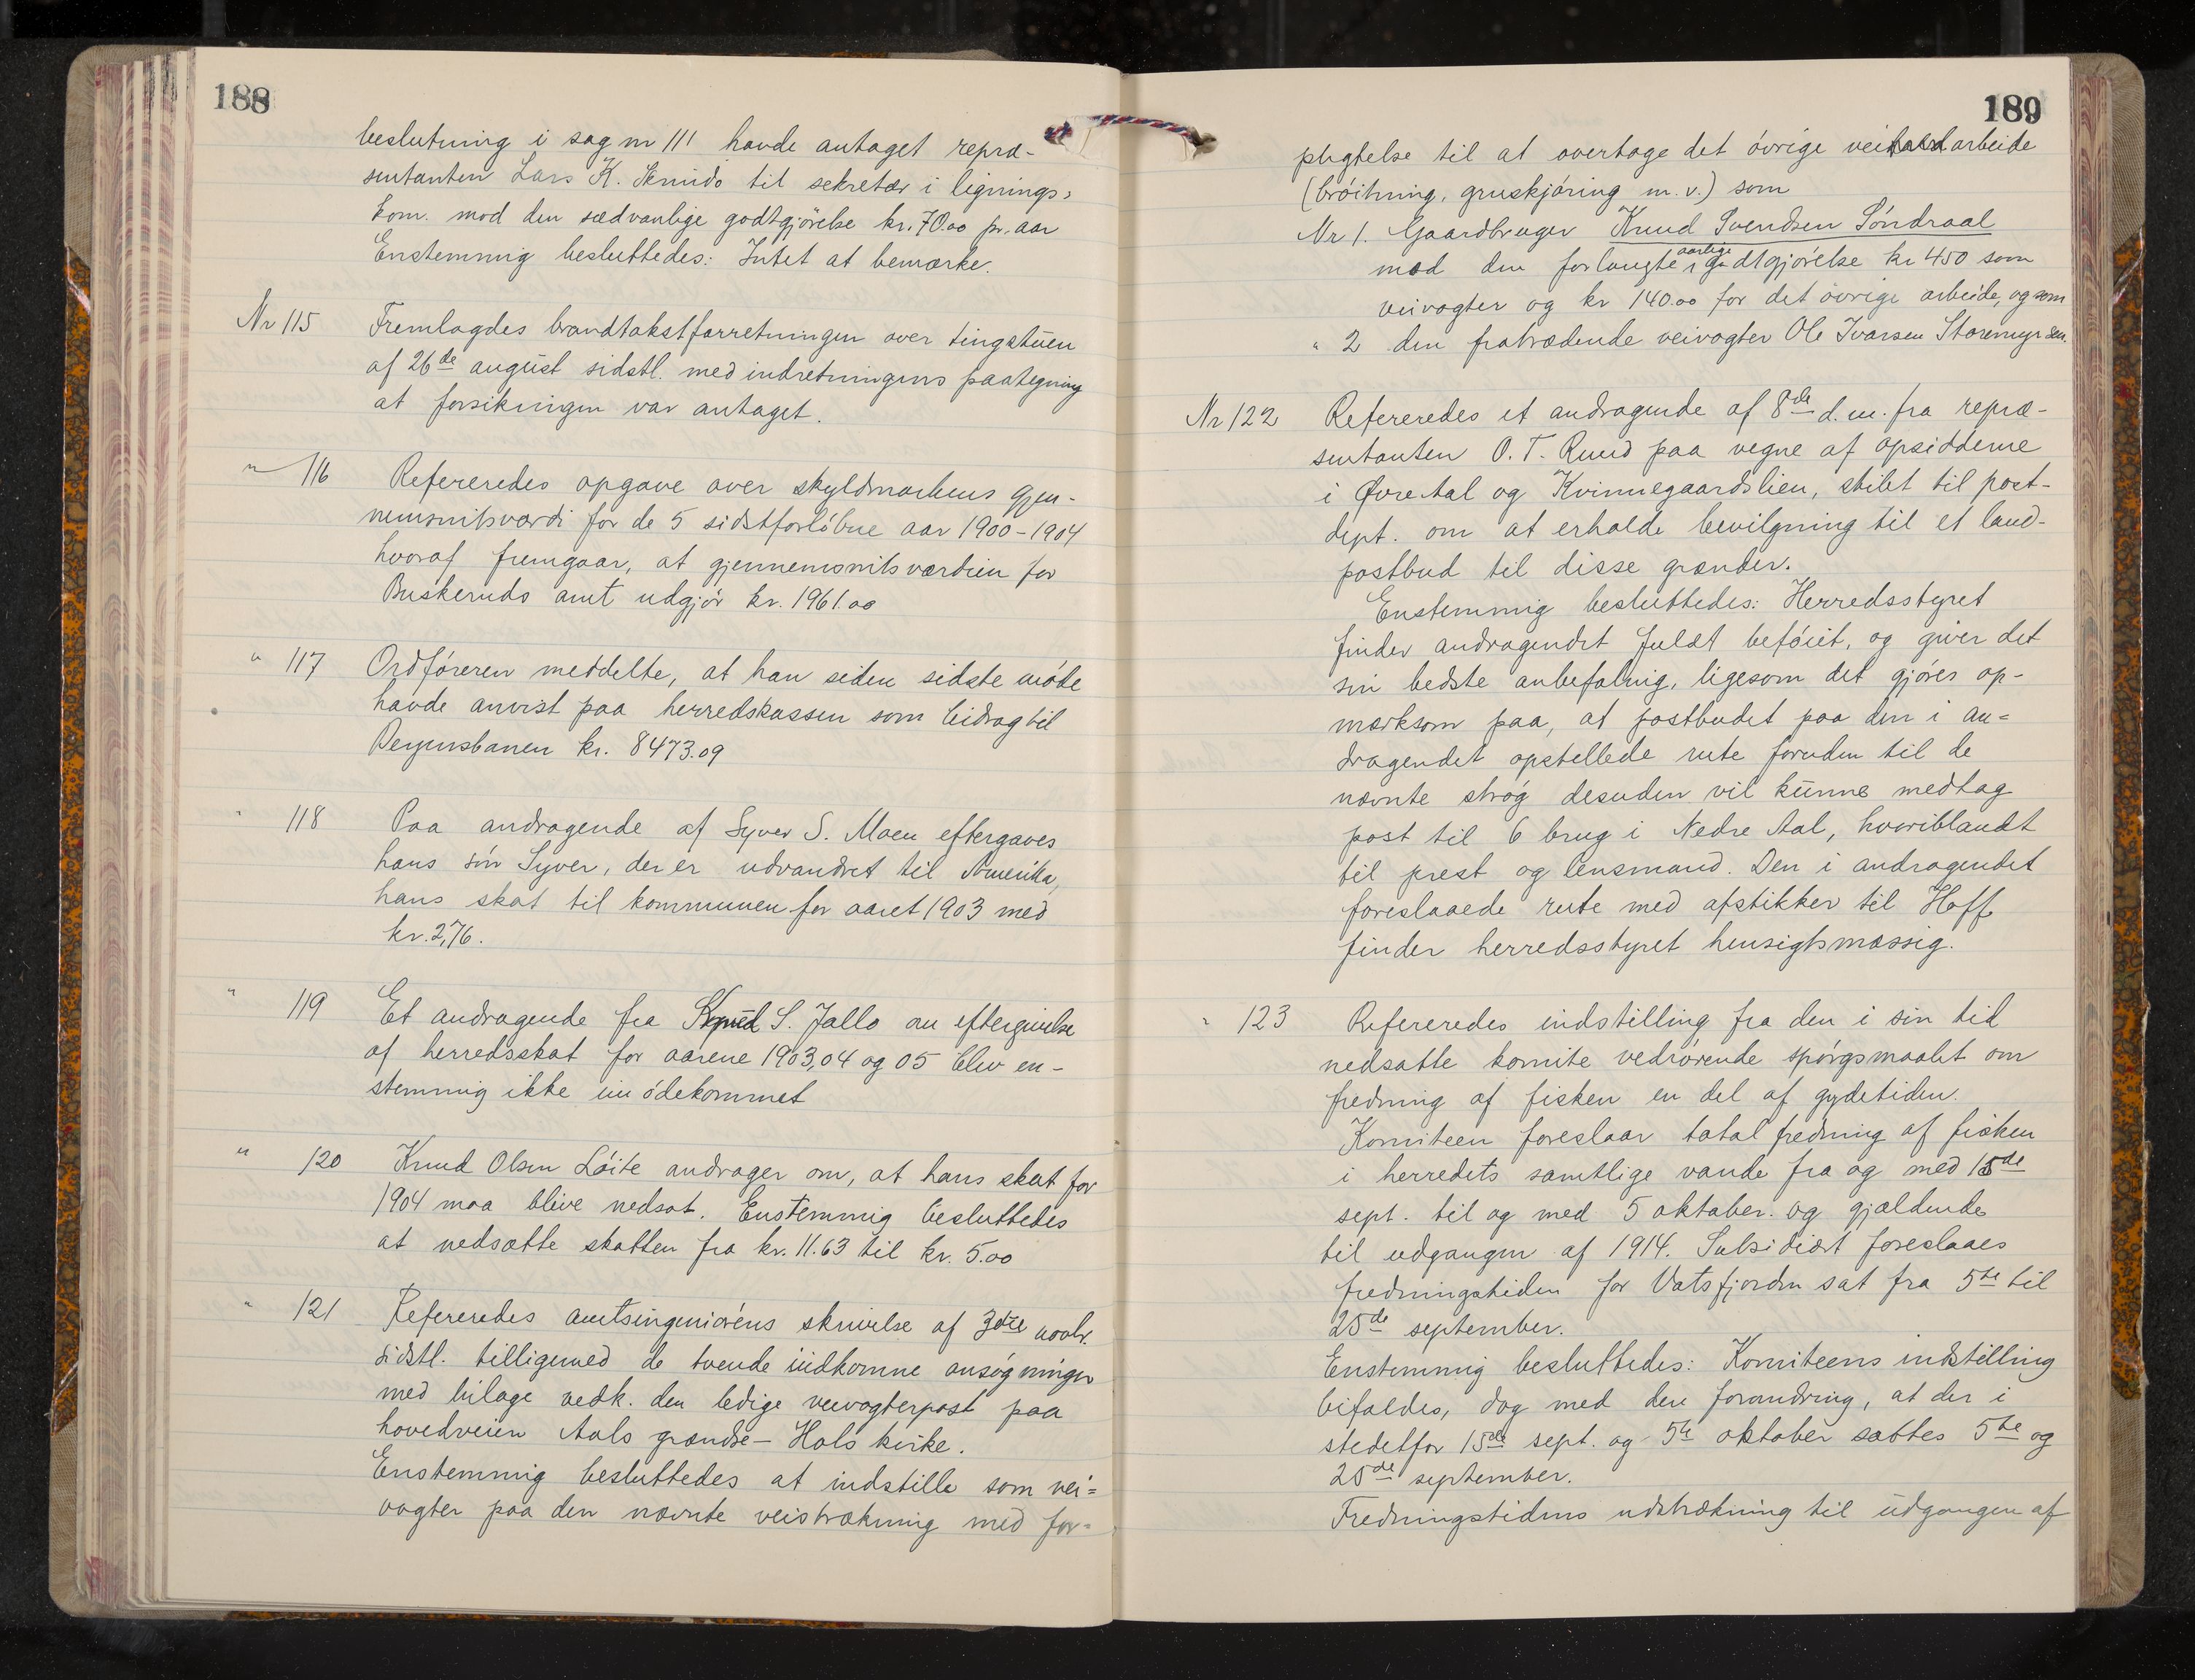 188
beslutning i sag nr 111 havde antaget repræ-
sentanten Lars K. til sekretær i lignings-
kom. mod den sædvanlige godtgjörelse kr. 70.00 pr. aar
Enstemmig besluttedes: Intet at bemærke.
Nr 115 Fremlagdes brandtakstforretningen over tingstuen
af 26de august sidstl. med indretningens paategning
at forsikringen var antaget.
" 116 Refereredes opgave over skyldmarkens gjen-
nemsnitsværdi for de 5 sidstforløbne aar 1900-1904
hvoraf fremgaar, at gjennemsnitsværdien for
Buskeruds amt udgjör kr. 1961.00
" 117 Ordföreren meddelte, at han siden sidste möde
havde anvist paa herredskassen som bidrag til
Bergensbanen kr. 8473.09
" 118 Paa andragende af Syver S. Moen eftergaves
hans sön Syver, der er udvandret til Amerika,
hans skat til kommunen for aaret 1903 med
kr. 2,76.
" 119 Et andragende fra Knud S. Jallo om eftergivelse
af herredsskat for aarene 1903,04 og 05 blev en-
stemmig ikke imödekommet
" 120 Knud Olsen Löite andrager om, at hans skat for
1904 maa blive nedsat. Enstemmig besluttedes
at nedsætte skatten fra kr. 11.63 til kr. 5.00
" 121 Refereredes amtsingeniörens skrivelse af 3dre novbr.
sidstl. tilligemed de tvende indkomne ansögninger
med bilage vedk. den ledige veivogterpost paa
hovedveien Aals grændse - Hols kirke.
Enstemmig besluttedes at indstille som vei-
vogter paa den nævnte veistrækning med for-
189
pligtelse til at overtage det övrige veiholdarbeide
(bröitning, gruskjöring m.v.) som
Nr 1. Gaardbruger Knud Svendsen Söndraal
mod den forlangte aarlige godtgjörelse kr 450 som
veivogter og kr 140.00 for det övrige arbeide, og som
" 2 den fratrædende veivogter Ole Ivarsen Storemyr sen.
Nr 122 Refereredes et andragende af 8de d.m. fra repræ-
sentanten O. T. Ruud paa vegne af opsidderne
i Øvre Aal og Kvinnegaardslien, stilet til post-
dept. om at erholde bevilgning til et land-
postbud til disse grænder.
Enstemmig besluttedes: Herredsstyret
finder andragendet fuldt beföiet, og giver det
sin bedste anbefaling, ligesom det gjöres op-
mærksom paa, at postbudet paa den i an-
dragendet opstellede rute foruden til de
nævnte strög desuden vil kunne medtag
post til 6 brug i Nedre Aal, hvoriblandt
til prest og lensmand. Den i andragendet
foreslaaede rute med afstikker til Hoff
finder herredsstyret hensigtsmæssig.
" 123 Refereredes indstilling fra den i sin tid
nedsatte komite vedrörende spörgsmaalet om
fredning af fisken en del af gydetiden.
Komiteen foreslaar total fredning af fisken
i herredets samtlige vande fra og med 15de
sept. til og med 5 oktober. og gjældende
til udgangen af 1914. Subsidiært foreslaaes
fredningstiden for Vatsfjorden sat fra 5te til
25de september.
Enstemmig besluttedes: Komiteens indstilling
bifaldes, dog med den forandring, at der i
stedetfor 15de sept. og 5te oktober sættes 5te og
25de september.
Fredningstidens udstrækning til udgangen af